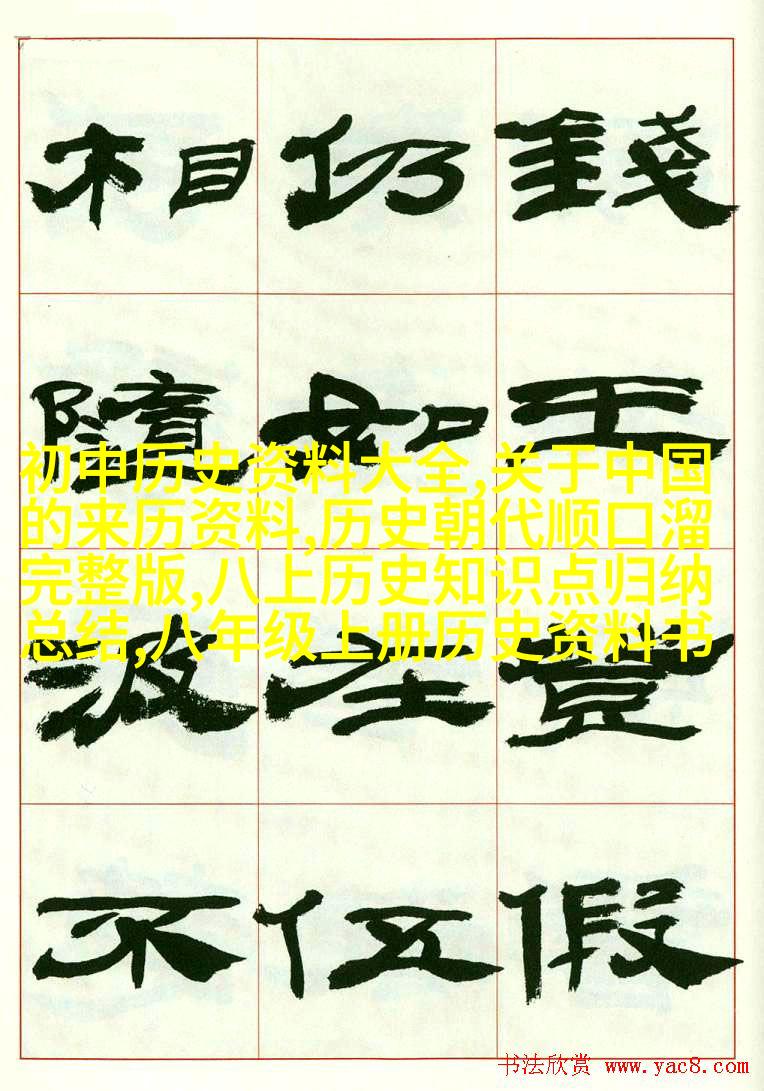 錢
王
假
仍
如
在
伍
相
隨
不
初中历史资料大全,关于中国
的来历资料,历史朝代顺口溜
完整版,八上历史知识点归纳
总结,八年级上册历史资料书
书法欣赏 www.yac8.com